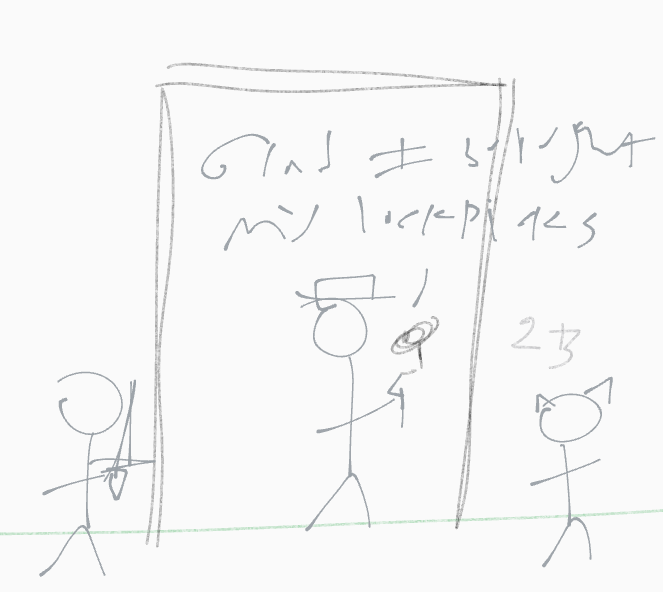 Glad I brought
my lockpicks